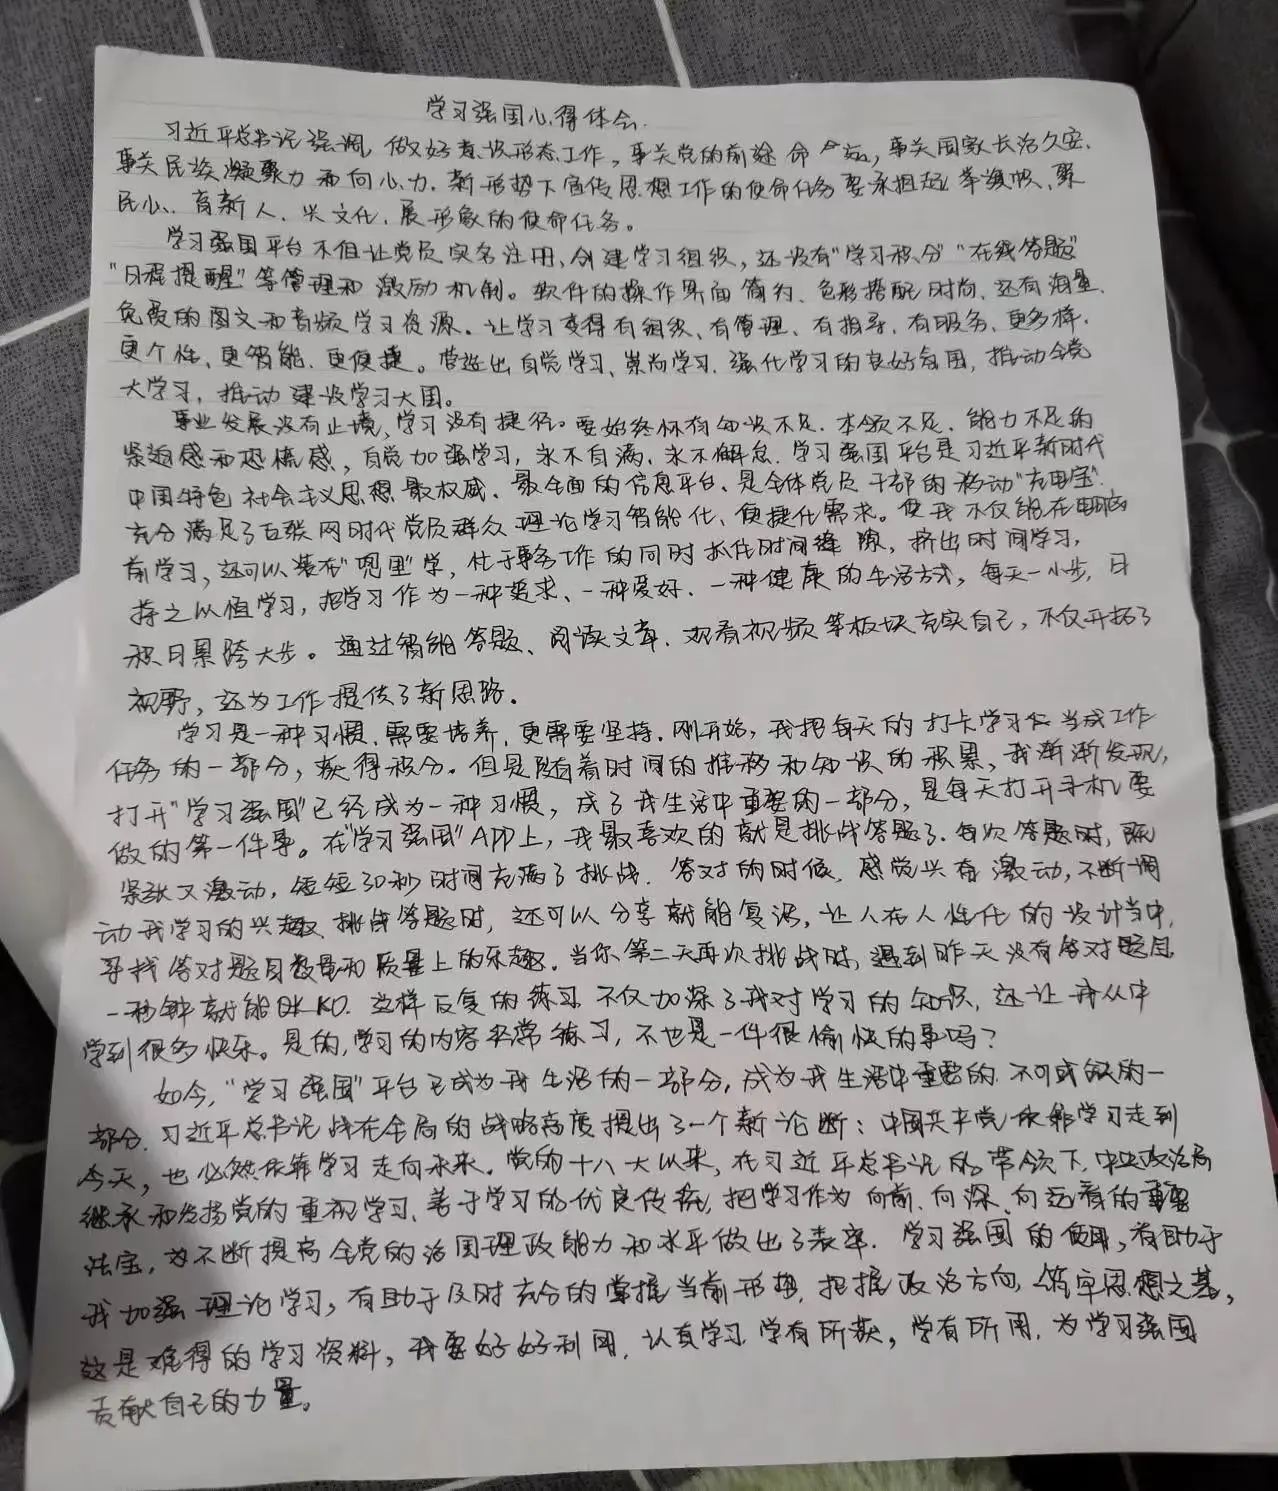 学习强国心得体会.
习近平总书记强调,做好意识形态工作,事关党的前途命运,事关国家长治久安、
事关民族凝聚力和向心力.新形势下宣传思想工作的使命任务要承担起举旗帜、聚
民心、育新人、兴文化、展形象的使命任务。
学习强国平台不但让党员实名注册、创建学习组织,还设有“学习积分”“在线答题”
“日程提醒”等管理和激励机制。软件的操作界面简约、色彩搭配时尚、还有海量、
免费的图文和音频学习资源.让学习变得有组织、有管理、有指导、有服务、更多样、
更个性、更智能、更便捷。营造出自觉学习、崇尚学习、强化学习的良好氛围,推动全党
大学习,推动建设学习大国。
事业发展没有止境,学习没有捷径。要始终怀有知识不足、本领不足、能力不足的
紧迫感和恐慌感,自觉加强学习,永不自满、永不懈怠.学习强国平台是习近平新时代
中国特色社会主义思想最权威、最全面的信息平台、是全体党员干部的移动“充电宝”.
充分满足了互联网时代党员群众理论学习智能化、便捷化需求。使我不仅能在电脑
前学习,还可以装在“兜里”学,忙于事务工作的同时抓住时间缝隙,挤出时间学习,
持之以恒学习,把学习作为一种追求、一种爱好、一种健康的生活方式,每天一小步,日
积月累跨大步。通过智能答题、阅读文章、观看视频等板块充实自己,不仅开拓了
视野,还为工作提供了新思路.
学习是一种习惯、需要培养、更需要坚持.刚开始,我把每天的打卡学习当成工作
任务的一部分,获得积分.但是随着时间的推移和知识的积累,我渐渐发现,
打开“学习强国”已经成为一种习惯,成了我生活中重要的一部分,是每天打开手机要
做的第一件事。在“学习强国”APP上,我最喜欢的就是挑战答题了.每次答题时,既
紧张又激动,短短30秒时间充满了挑战.答对的时候,感觉兴奋激动,不断调
动我学习的兴趣、挑战答题时,还可以分享就能复活,让人在人性化的设计当中,
寻找答对题目数量和质量上的乐趣.当你第二天再次挑战时,遇到昨天没有答对题目
一秒钟就能KO.这样反复的练习不仅加深了我对学习的知识,还让我从中
学到很多快乐。是的,学习的内容平常练习,不也是一件很愉快的事吗?
如今,“学习强国”平台已成为我生活的一部分,成为我生活中重要的、不可或缺的一
部分.习近平总书记站在全局的战略高度提出了一个新论断:中国共产党依靠学习走到
今天,也必然依靠学习走向未来.党的十八大以来,在习近平总书记的带领下,中央政治局
继承和发扬党的重视学习、善于学习的优良传统,把学习作为向前、向深、向远看的重要
法宝,为不断提高全党的治国理政能力和水平做出了表率.学习强国的使用,有助于
我加强理论学习,有助于及时充分的掌握当前形势,把握政治方向,筑牢思想之基,
这是难得的学习资料,我要好好利用,认真学习学有所获,学有所用,为学习强国
贡献自己的力量。